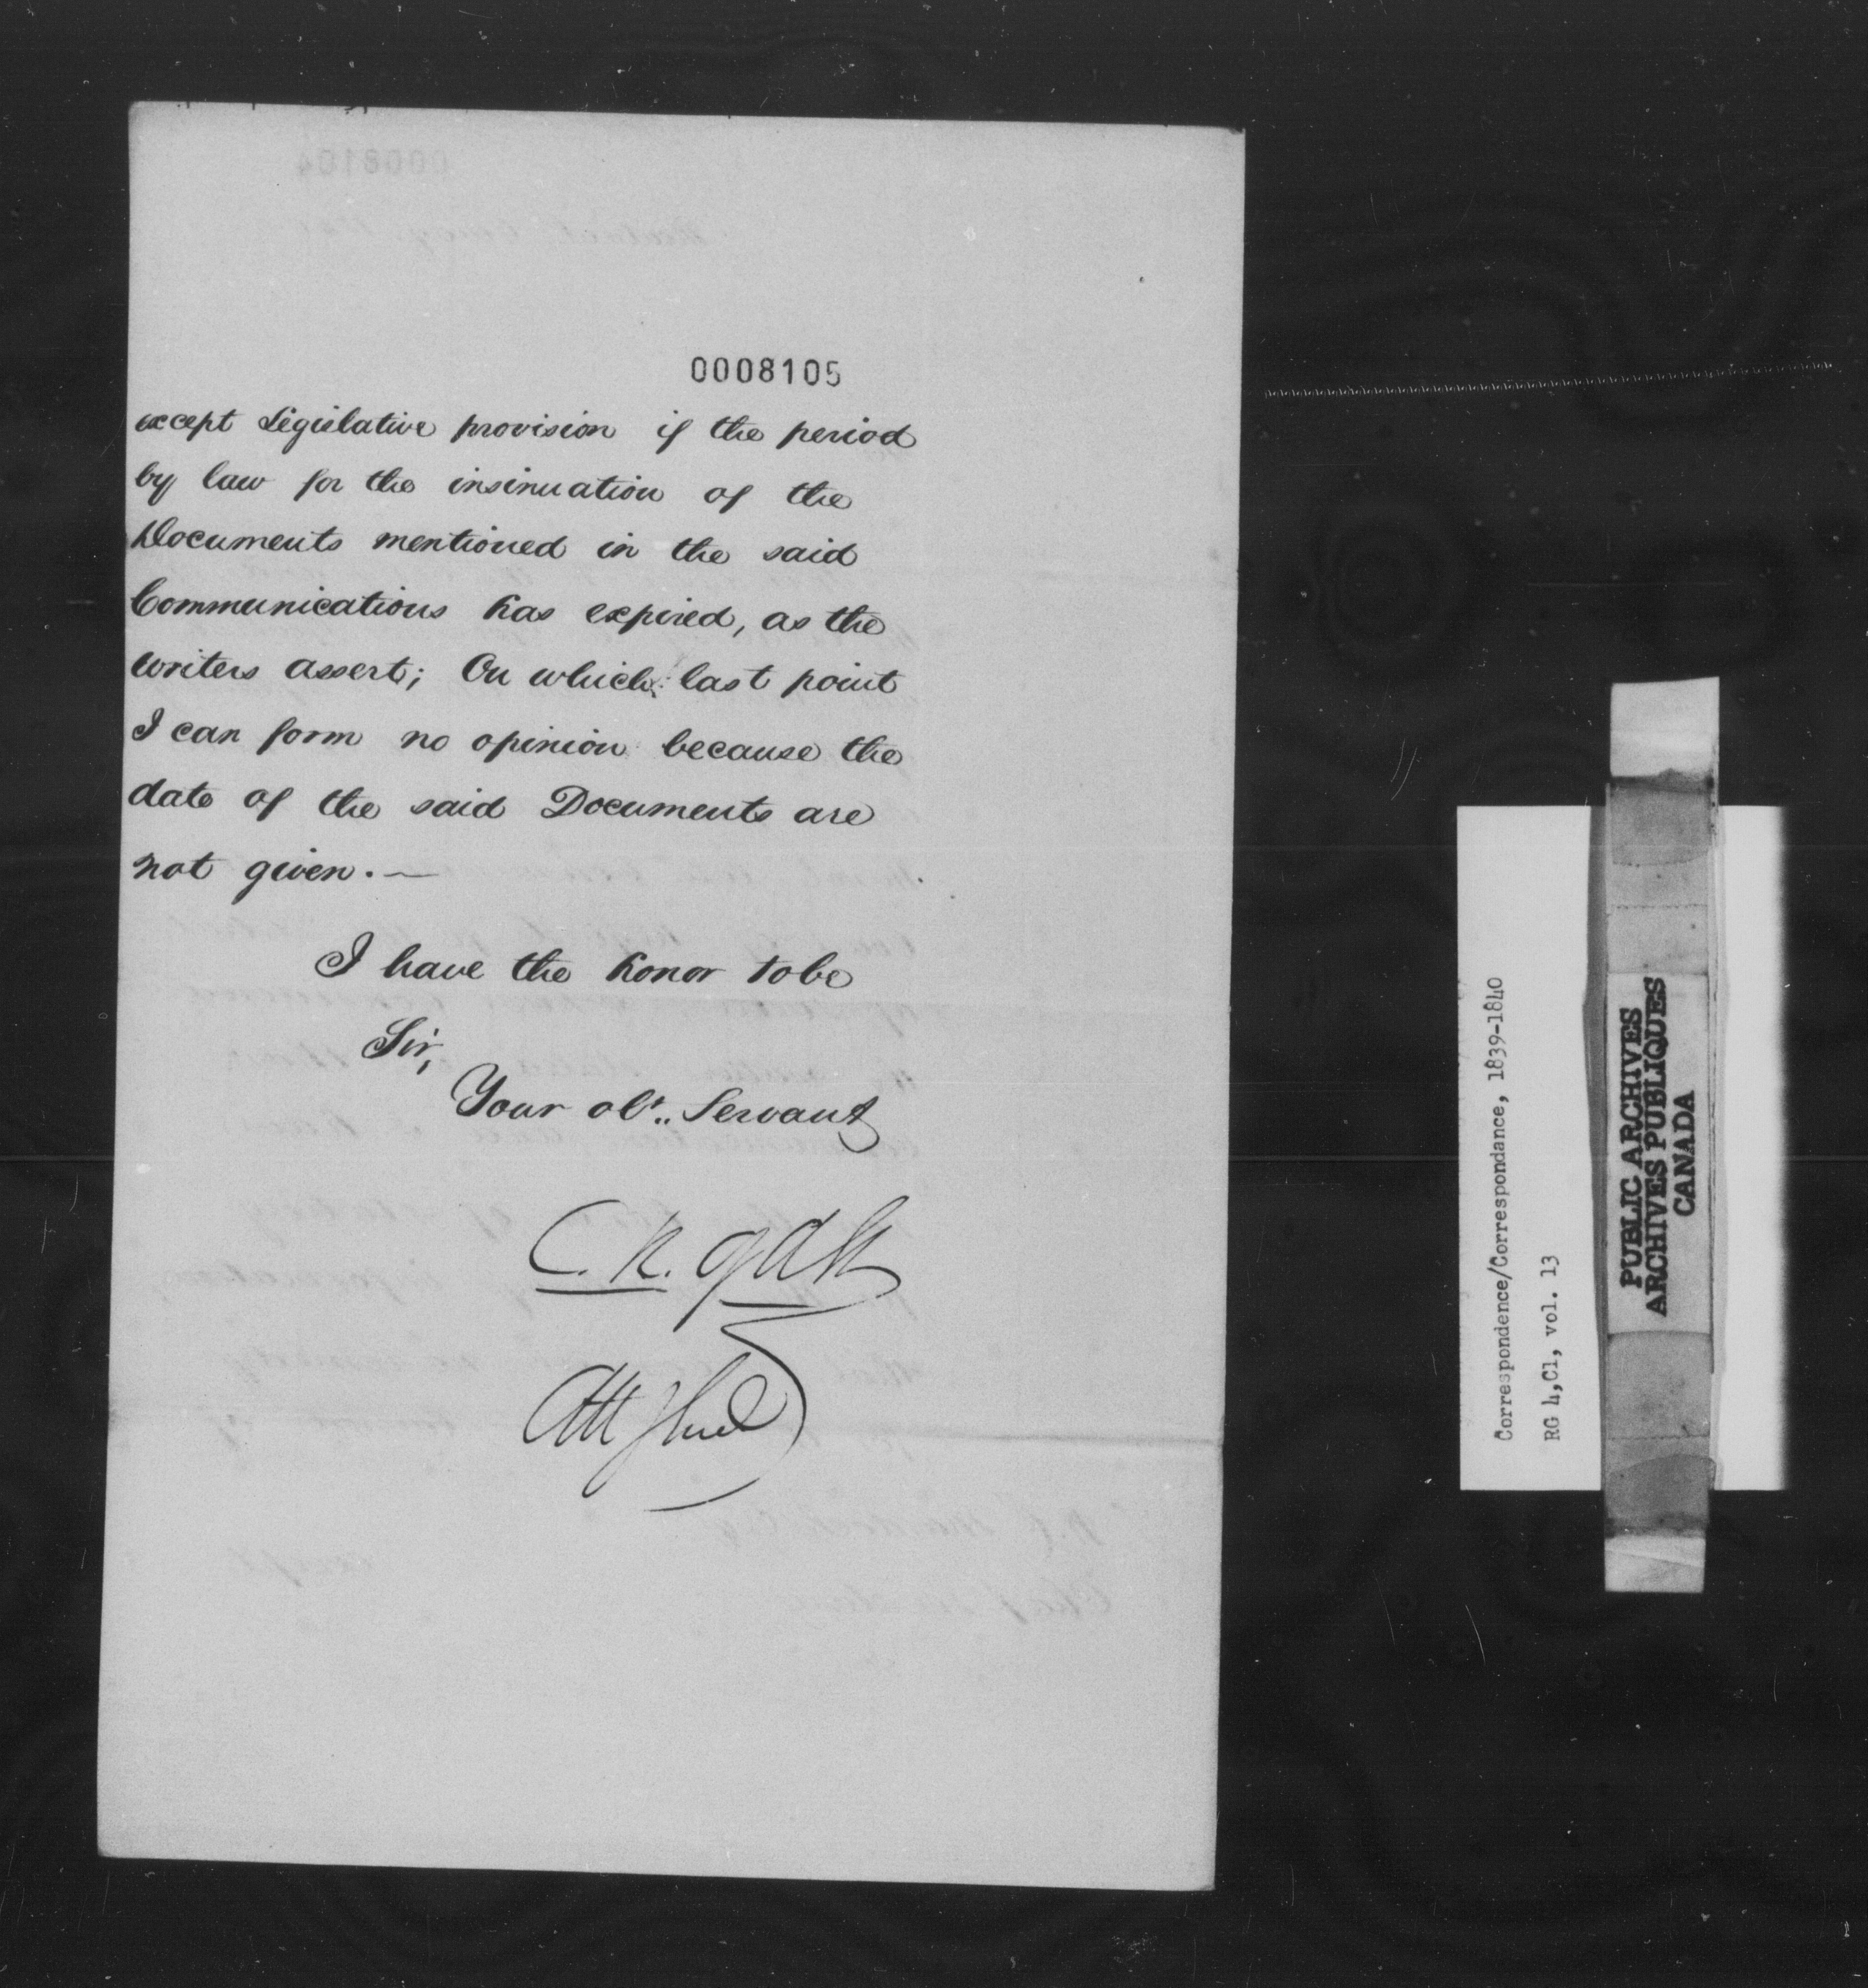 0008105
except Legislative provision if the period
by law for the insinuation of the
Documents mentioned in the said
Communications has expired, as the
writers assert; On which last point
I can form no opinion because the
date of the said Documents are
not given. —
I have the honor to be
Sir,
Your obt. Servant
C. R. Ogden
Att Genl
Correspondence/Correspondance, 1839-1840
RG 4,C1, vol. 13
PUBLIC ARCHIVES
ARCHIVES PUBLIQUES
CANADA